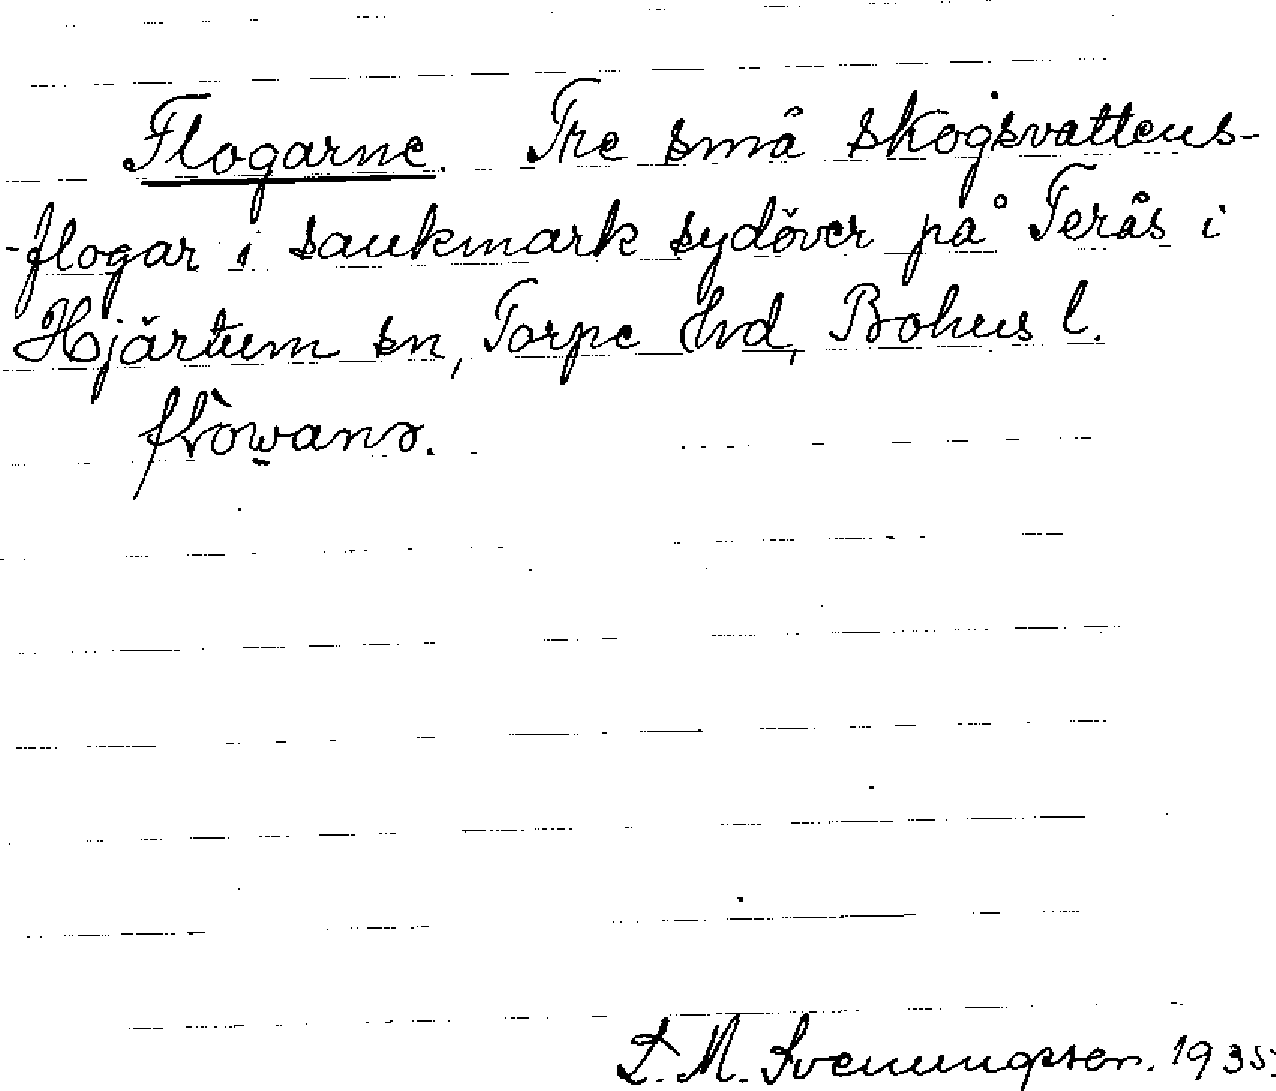 Flogarne. Tre små skogsvattens-
-flogar i sankmark sydöver på Terås i
Hjärtum sn, Torpe hd, Bohus l.
1935.